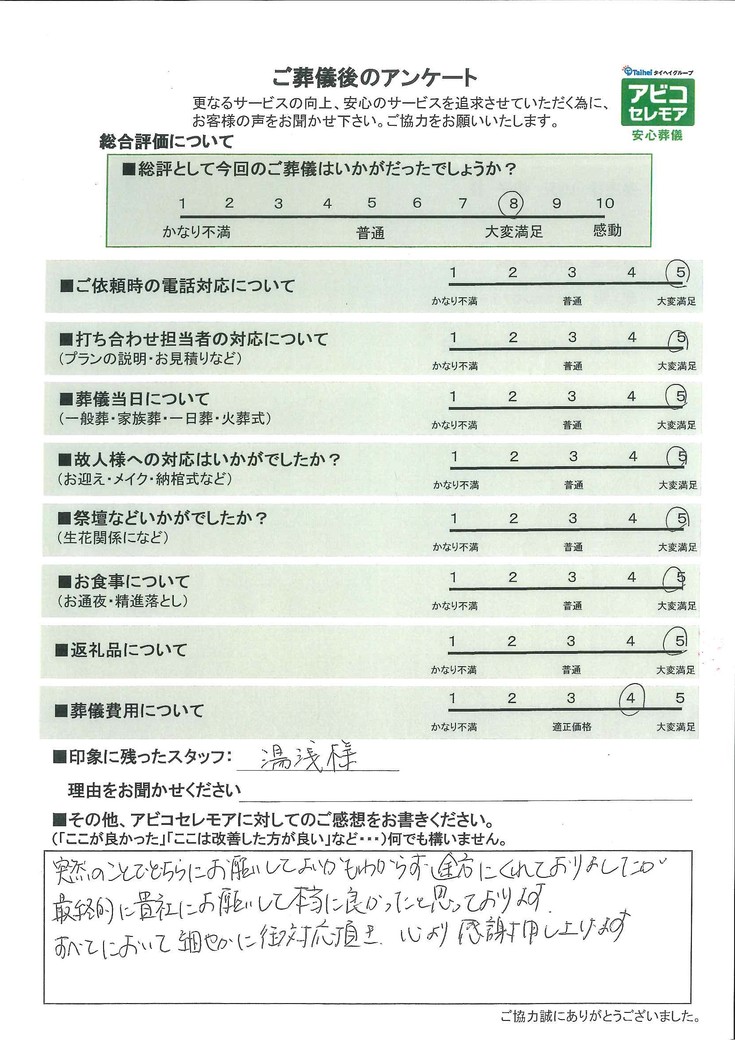 ご葬儀後のアンケート
Taihei タイヘイグループ
アビコ
セレモア
安心葬儀
更なるサービスの向上、安心のサービスを追求させていただく為に、
お客様の声をお聞かせ下さい。ご協力をお願いいたします。
総合評価について
■総評として今回のご葬儀はいかがだったでしょうか？
1 2 3 4 5 6 7 8 9 10
かなり不満 普通 大変満足 感動
■ご依頼時の電話対応について
1 2 3 4 5
かなり不満 普通 大変満足
■打ち合わせ担当者の対応について
(プランの説明・お見積りなど)
1 2 3 4 5
かなり不満 普通 大変満足
■葬儀当日について
(一般葬・家族葬・一日葬・火葬式)
1 2 3 4 5
かなり不満 普通 大変満足
■故人様への対応はいかがでしたか？
(お迎え・メイク・納棺式など)
1 2 3 4 5
かなり不満 普通 大変満足
■祭壇などいかがでしたか？
(生花関係になど)
1 2 3 4 5
かなり不満 普通 大変満足
■お食事について
(お通夜・精進落とし)
1 2 3 4 5
かなり不満 普通 大変満足
■返礼品について
1 2 3 4 5
かなり不満 普通 大変満足
■葬儀費用について
1 2 3 4 5
かなり不満 適正価格 大変満足
■印象に残ったスタッフ： 湯浅様
理由をお聞かせください
■その他、アビコセレモアに対してのご感想をお書きください。
(「ここが良かった」「ここは改善した方が良い」など・・・)何でも構いません。
突然のことでどちらにお願いしてよいかもわからず途方にくれておりましたが
最終的に貴社にお願いして本当に良かったと思っております
すべてにおいて細やかに御対応頂き、心より感謝申し上げます
ご協力誠にありがとうございました。